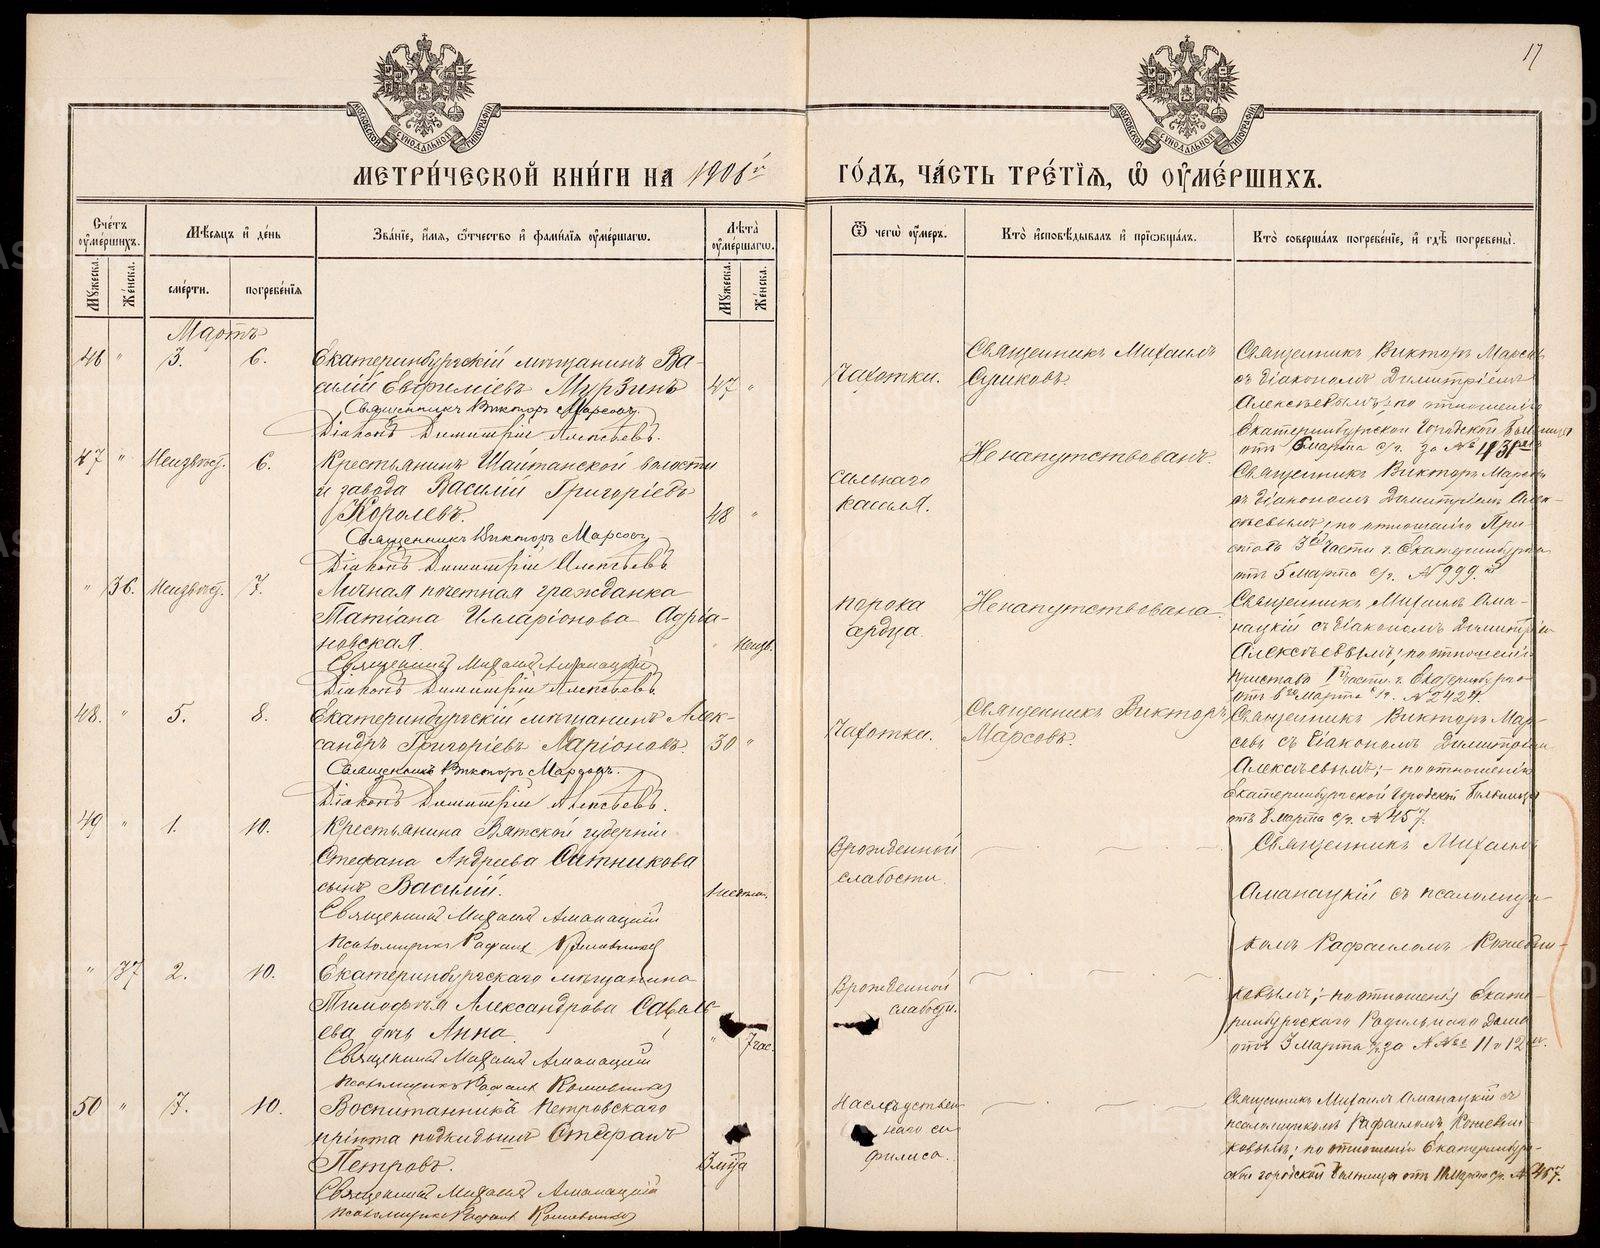 17
МОСКОВСКОЙ СѴНОДАЛЬНОЙ ТИПОГРАФІИ
МОСКОВСКОЙ СѴНОДАЛЬНОЙ ТИПОГРАФІИ
МЕТРИ́ЧЕСКОЙ КНИ́ГИ НА 1906й
ГО́ДЪ, ЧА́СТЬ ТРЕ́ТІЯ, Ѡ ОУМЕ́РШИХЪ.
Сче́тъ оумéршихъ.
Мѣ́сяцъ и де́нь
Зва́ніе, и́мя, ѻ́тчество и фами́лія оумéршагѡ.
Лѣ́та оумéршагѡ.
Ѿ чегѡ̀ оу́меръ.
Кто̀ и҆сповѣ́дывалъ и҆ пріѡбща́лъ.
Кто̀ соверша́лъ погребе́ніе, и҆ гдѣ̀ погребены̀.
Мꙋ́жеска.
Же́нска.
сме́рти.
погребе́нія
Мꙋ́жеска.
Же́нска.
Мартъ
46 " 3. 6.
Екатеринбургскій мѣщанинъ Ва-
силій Евфиміевъ Мурзинъ
47 "
Священникъ Викторъ Марсовъ
Діаконъ Димитрій Алексѣевъ.
Чахотки.
Священникъ Михаилъ
Сушковъ.
Священникъ Викторъ Марсовъ
съ діакономъ Димитріемъ
Алексѣевымъ; по отношенію
Екатеринбургской Городской Больницы
отъ 6 марта с/г. за №
47 " Неизвѣст. 6.
Крестьянинъ Шайтанской волости
и завода Василій Григоріевъ
Королевъ.
48 "
Священникъ Викторъ Марсовъ
Діаконъ Димитрій Алексѣевъ
сильнаго
кашля.
Ненапутствованъ.
Священникъ Викторъ Марсовъ
съ діакономъ Димитріемъ Алек-
сѣевымъ; по отношенію При-
става 3ей части г. Екатеринбурга
отъ 5 марта с/г. №999.
" 36. Неизвѣст. 7.
Личная почетная гражданка
Татіана Илларіонова Адріа-
новская.
" Неизв.
Священникъ Михаилъ Аманацкій
Діаконъ Димитрій Алексѣевъ
порока
сердца.
Ненапутствована.
Священникъ Михаилъ Ама-
нацкій съ діакономъ Димитріем
Алексѣевымъ; по отношенію
пристава 1й части г. Екатеринбурга
отъ 6го марта с/г. №2424.
48. " 5. 8.
Екатеринбургскій мѣщанинъ Алек-
сандръ Григоріевъ Ларіоновъ.
30 "
Священникъ Викторъ Марсовъ.
Діаконъ Димитрій Алексѣевъ.
Чахотки.
Священникъ Викторъ
Марсовъ.
Священникъ Викторъ Мар-
совъ съ діакономъ Димитріем
Алексѣевымъ; - по отношенію
Екатеринбургской Городской Больницы
отъ 8 марта с/г. №457.
49 " 1. 10.
Крестьянина Вятской губерніи
Стефана Андреева Ситникова
сынъ Василій.
Священникъ Михаилъ Аманацкій
Псаломщикъ Рафаилъ Кожевниковъ
Врожденной
слабости.
Священникъ Михаилъ
Аманацкій съ псаломщи-
комъ Рафаиломъ Кожевни-
ковымъ; - по отношенію Екате-
ринбургскаго Родильнаго Дома
отъ 3 марта с/г за №№ 11 и 12
" 37 2. 10.
Екатеринбургскаго мѣщанина
Тимофѣя Александрова Савель-
ева дочь Анна.
" 7 час.
Священникъ Михаилъ Аманацкій
Псаломщикъ Рафаилъ Кожевниковъ
Врожденной
слабости.
50 " 7. 10.
Воспитанника Петровскаго
пріюта подкидышъ Стефанъ
Петровъ.
Священникъ Михаилъ Аманацкій
Псаломщикъ Рафаилъ Кожевниковъ
Наслѣдствен-
наго си-
филиса.
Священникъ Михаилъ Аманацкій съ
псаломщикомъ Рафаиломъ Кожевни-
ковымъ; по отношенію Екатеринбург-
ской городской больницы отъ марта с/г. №467.